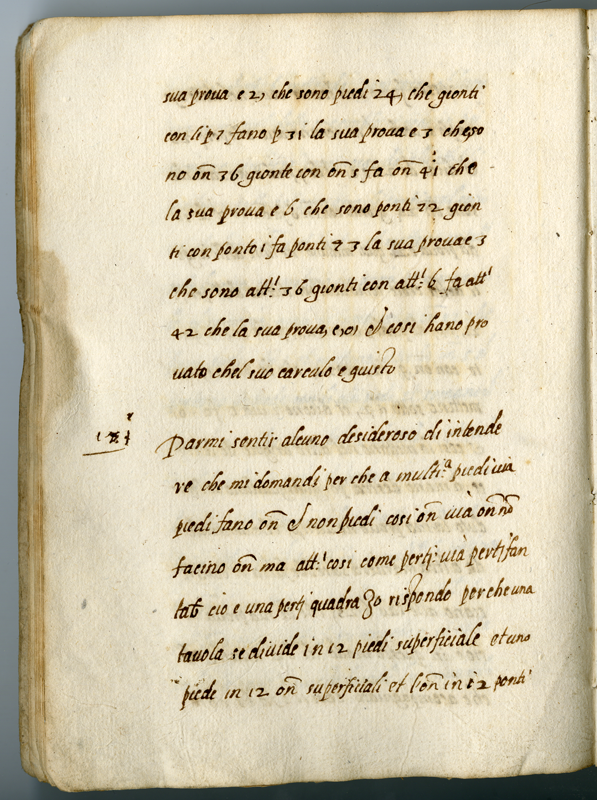 sua prova e 2, che sono piedi 24, che gionti
con li p 7 fano p 31 la sua prova e 3 che so
no on̄ 36 gionte con on̄ 5 fa on̄ 41 che
la sua prova e 6 che sono ponti 72 gion
ti con ponto i fa ponti 73 la sua prova e 3
che sono att.i 36 gionti con att.i 6 fa att.i
42 che la sua prova, e, 0, & cosi hano pro
vato chel suo carculo e guisto
Parmi sentir alcuno desideroso di intende
re che mi domandi per che a multi.a piedi via
piedi fano on̄ & non piedi cosi on̄ uià on̄ nō
facino on̄ ma att.i cosi come pertj: uià pertj fan
taō cio e una pertj quadra Io rispondo per che una
tavola se divide in 12 piedi superficiale et uno
piede in 12 on̄ superficiali et l'on̄ in 12 ponti